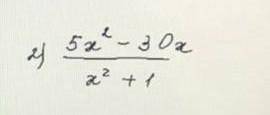 2) (5x² - 30x) / (x² + 1)